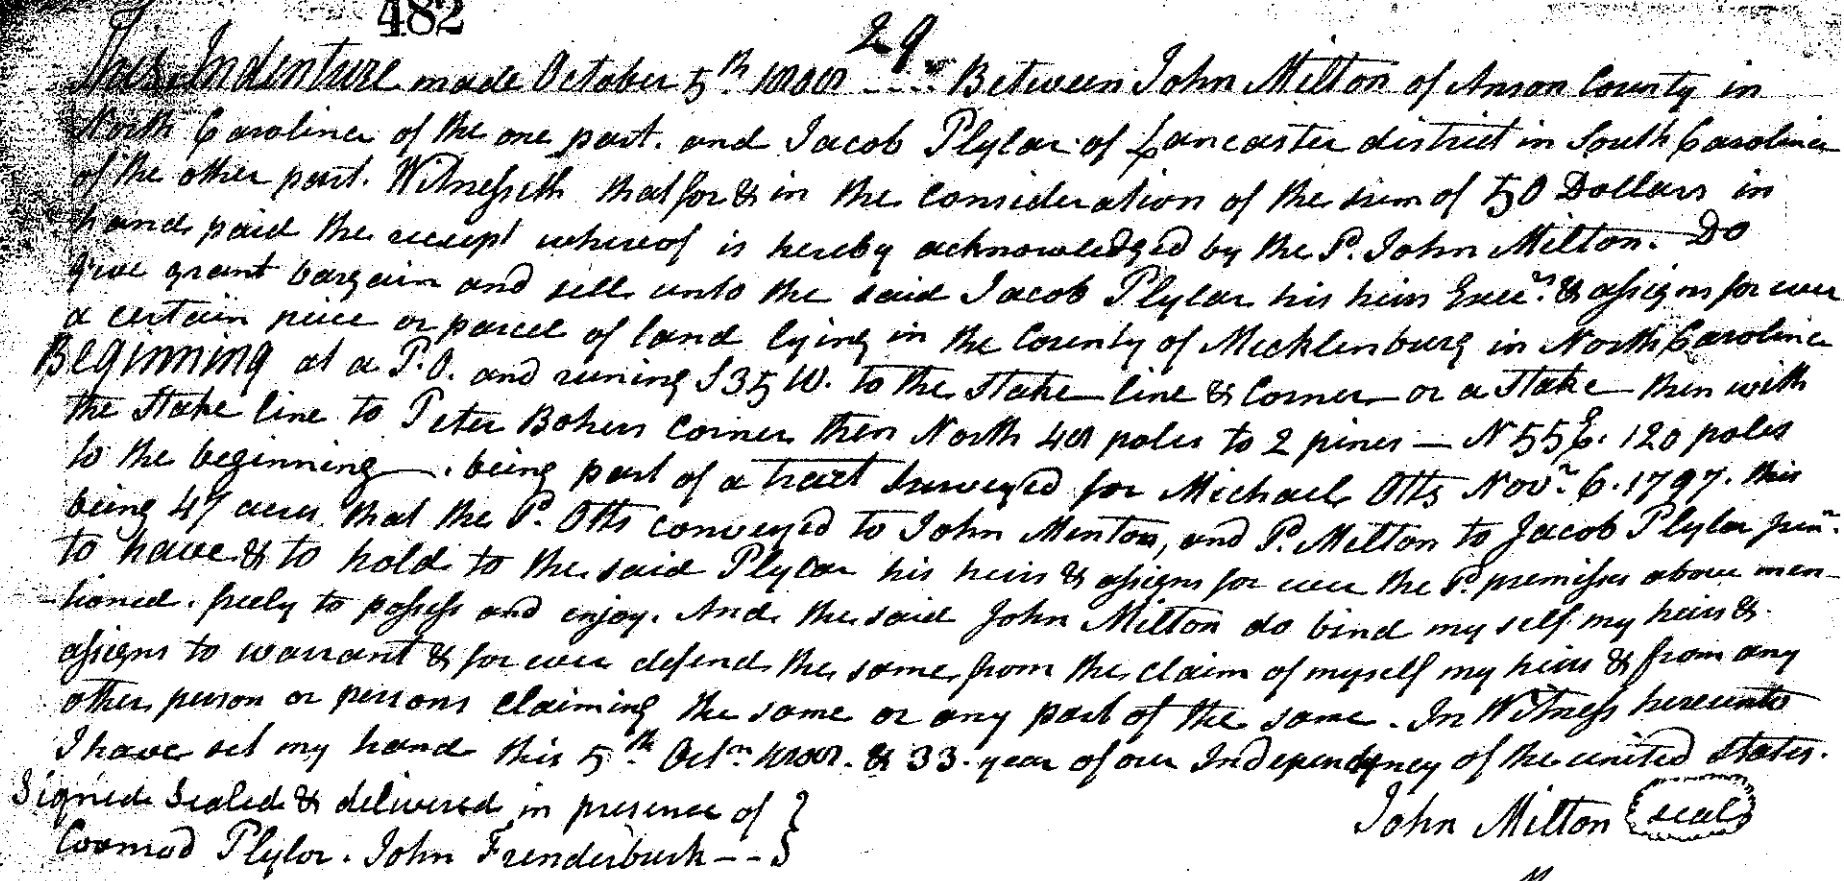 482
29
This Indenture made October 5th 1808 - - - - Between John Milton of Anson County in
North Carolina of the one part. and Jacob Plylar of Lancaster district in South Carolina
of the other part. Witnesseth that for & in the consideration of the sum of 50 Dollars in
hand paid the receipt whereof is hereby acknowledged by the Sd. John Milton. Do
give grant bargain and sell unto the said Jacob Plylar his heirs Exers. & assigns for ever
a certain piece or parcel of land lying in the County of Mecklenburg in North Carolina
Beginning at a P.O. and runing S 35 W. to the State line & Corner or a Stake then with
the State line to Peter Bokers Corner then North 48 poles to 2 pines — N 55 E. 120 poles
to the beginning. being part of a tract Surveyed for Michael Otts Novr. 6. 1797. this
being 47 acres that the Sd. Otts conveyed to John Menton, and Sd. Milton to Jacob Plylar junr.
to have & to hold to the said Plylar his heirs & assigns for ever the Sd. premises above men-
-tioned. freely to possess and enjoy. And the said John Milton do bind my self my heirs &
assigns to warrant & for ever defend the same from the claim of myself my heirs & from any
other person or persons claiming the same or any part of the same. In Witness hereunto
I have set my hand this 5th Octr. 1808. & 33. year of our Independency of the united States.
Signed Sealed & delivered in presence of }
John Milton (seal)
Coonrod Plylor. John Frenderburk - - }